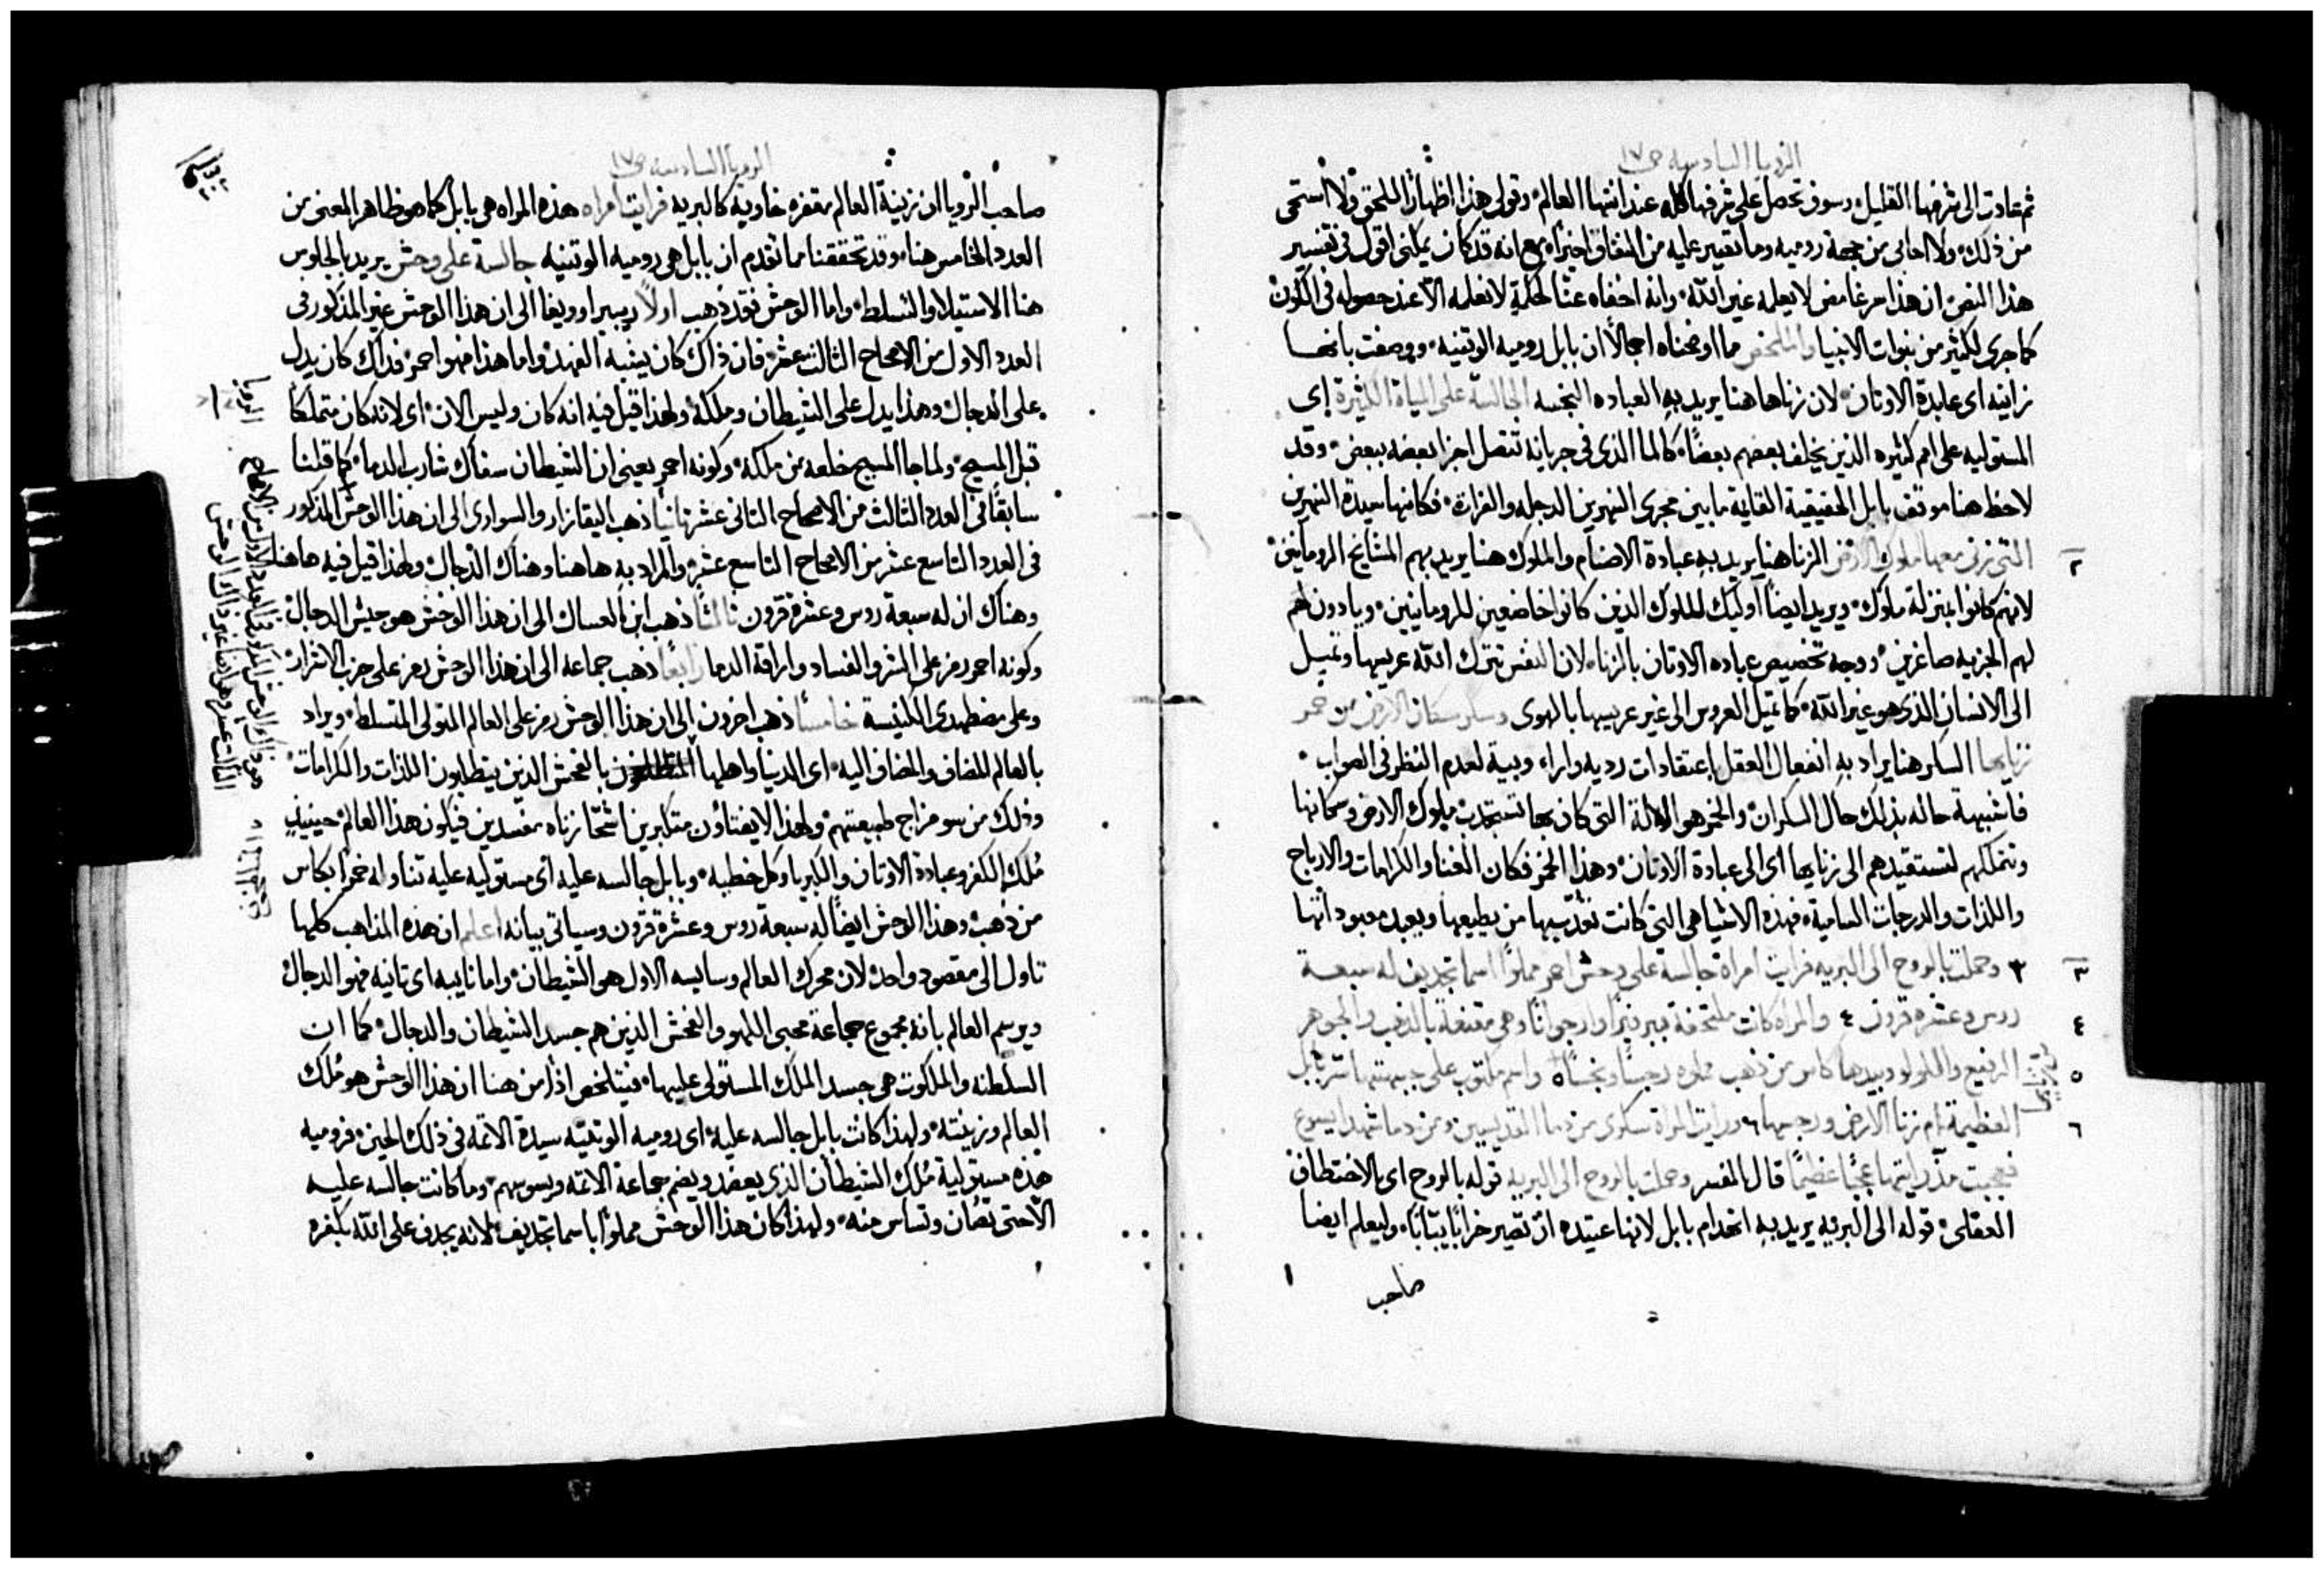 الرويا السادسه ص١٧
ثم عادت الى شرفها القليل وسوف تحصل على شرفها كله عند انتها العالم وقولى هذا اظهارًا للحق ولا استحى
من ذلك ولا احابى من جهة روميه وما تغيير عليه من النفاق اخيرًا مع انه قد كان يمكنى اقول فى تفسير
هذا النص ان هذا سر غامض لا يعلمه غير الله وانه اخفاه عنا لحكمة لا نعلمه الا عند حصوله فى الكون
كما جرى لكثير من نبوات الانبيا والملخص مما اوضحناه اجمالًا ان بابل روميه الوتنيه ووصفت بانها
زانيه اى عابدة الاوتان لان زناها هنا يريد به العباده النجسه الجالسة على المياة الكثيرة اى
المستوليه على امم كثيره الذين يخلف بعضهم بعضًا كالما الذى فى جريانه تتصل اجزا بعضه ببعض وقد
لاحظ هنا موقف بابل الحقيقية القايمة ما بين مجرى النهرين الدجله والفراة فكانها سيدة النهرين
٢ التى زنى معها ملوك الارض الزنا هنا يريد به عبادة الاصنام والملوك هنا يريد بهم المشايخ الرومانيين
لانهم كانوا بمنزلة ملوك ويريد ايضًا اوليك الملوك الذين كانوا خاضعين للرومانيين ويادون لهم
لهم الجزيه صاغرين ووجه تخصيص عباده الاوتان بالزنا لان النفس تترك الله عريسها وتميل
الى الانسان الذى هو غير الله كما تميل العروس الى غير عريسها بالهوى وسكر سكان الارض من خمر
زناها السكر هنا يراد به انفعال العقل باعتقادات رديه واراء وبية لعدم النظر فى الصواب
فاشبهة حاله بذلك حال السكران والخمر هو الالة التى كان بها تستجدب ملوك الارض وسكانها
وتتملكهم لتستقيدهم الى زناها اى الى عبادة الاوتان وهذا الخمر فكان الغنا والكرامات والارباح
واللذات والدرجات السامية فهذه الاشيا هى التى كانت تعد بها من يطيعها ويعبد معبوداتها
٣ وحملت بالروح الى البريه فرايت امراة جالسة على وحش احمر مملوًا اسما تجديف له سبعة
روس وعشره قرون ٤ والمراه كانت ملتحفة ببرفير وارجوانًا وهى مقنعة بالذهب والجوهر
الرفيع واللولو وبيدها كاس من ذهب مملوه رجسًا ونجسًا ٥ واسم مكتوب على جبهتها سر بابل
العظيمة ام زنا الارض ورجسها ٦ ورايت المراة سكرى من دما القديسين ومن دما شهدا يسوع
فعجبت مذ رايتها عجبًا عظيمًا قال المفسر وحملت بالروح الى البريه قوله بالروح اى بالاختطاف
العقلى قوله الى البريه يريد به انهدام بابل لانها عتيده ان تصير خرابًا يبابًا وليعلم ايضا
صاحب
الرويا السادسه ص١٧
صاحب الرويا ان زينة العالم مقفره خاوية كالبريه فرايت امراه هذه المراه هى بابل كما هو ظاهر المعنى من
العدد الخامس هنا وقد تحققنا مما تقدم ان بابل هى روميه الوتنيه جالسة على وحش يريد بالجلوس
هنا الاستيلا والتسلط واما الوحش فقد ذهب اولًا ريبيرا وويغا الى ان هذا الوحش غير المذكور فى
العدد الاول من الاصحاح الثالث عشر فان ذاك كان يشبه الفهد واما هذا فهو احمر فذاك كان يدل
على الدجال وهذا يدل على الشيطان وملكه ولهذا قيل فيه انه كان وليس الان اى لانه كان متملكًا
قبل المسيح ولما جا المسيح خلعه من ملكه وكونه احمر يعنى ان الشيطان سفاك شارب الدما كما قلنا
سابقًا فى العدد الثالث من الاصحاح الثانى عشر ثانيًا ذهب اليقازار والسوارى الى ان هذا الوحش المذكور
فى العدد التاسع عشر من الاصحاح التاسع عشر والمراد به هاهنا وهناك الدجال ولهذا قيل فيه هاهنا
وهناك ان له سبعة روس وعشرة قرون ثالثًا ذهب ابن العسال الى ان هذا الوحش هو جيش الدجال
وكونه احمر رمز على الشر والفساد واراقة الدما رابعًا ذهب جماعه الى ان هذا الوحش رمز على حزب الاشرار
وعلى مضطهدى الكنيسة خامسًا ذهب اخرون الى ان هذا الوحش رمز على العالم المتولى المتسلط ويراد
بالعالم المضاف والمضاف اليه اى الدنيا واهلها بالفحش الذين يتطلبون اللذات والكرامات
وذلك من سو مزاج طبيعتهم ولهذا لا يفتاون متكبرين اشحًا زناه مفسدين فيكون هذا العالم حينيذٍ
مُلك الكفر وعبادة الاوتان والكبريا وكل خطيه وبابل جالسه عليه اى مستوليه عليه تناوله خمرًا بكاس
من ذهب وهذا الوحش ايضًا له سبعة روس وعشرة قرون وسياتى بيانه اعلم ان هذه المذاهب كلها
تاول الى مقصود واحد لان محرك العالم وسايسه الاول هو الشيطان واما نايبه اى ثانيه فهو الدجال
ويرسم العالم بانه مجموع جماعة محبى اللهو والفحش الذين هم جسد الشيطان والدجال كما ان
السلطنه والملكوت هى جسد الملك المستولى عليها فيتلخص اذًا من هنا ان هذا الوحش هو مُلك
العالم وزينته ولهذا كانت بابل جالسه عليه اى روميه الوتنيه سيدة الامم فى ذلك الحين فروميه
هذه مستولية مُلك الشيطان الذى يعضد ويضم جماعة الاثمه ويسوسهم وما كانت جالسه عليه
الا حتى تصان وتساس منه ولهذا كان هذا الوحش مملوًا باسما تجديف لانه يجدف على الله بكفره